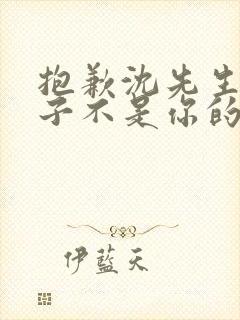 抱歉沈先生
子不是你的
伊蓝天